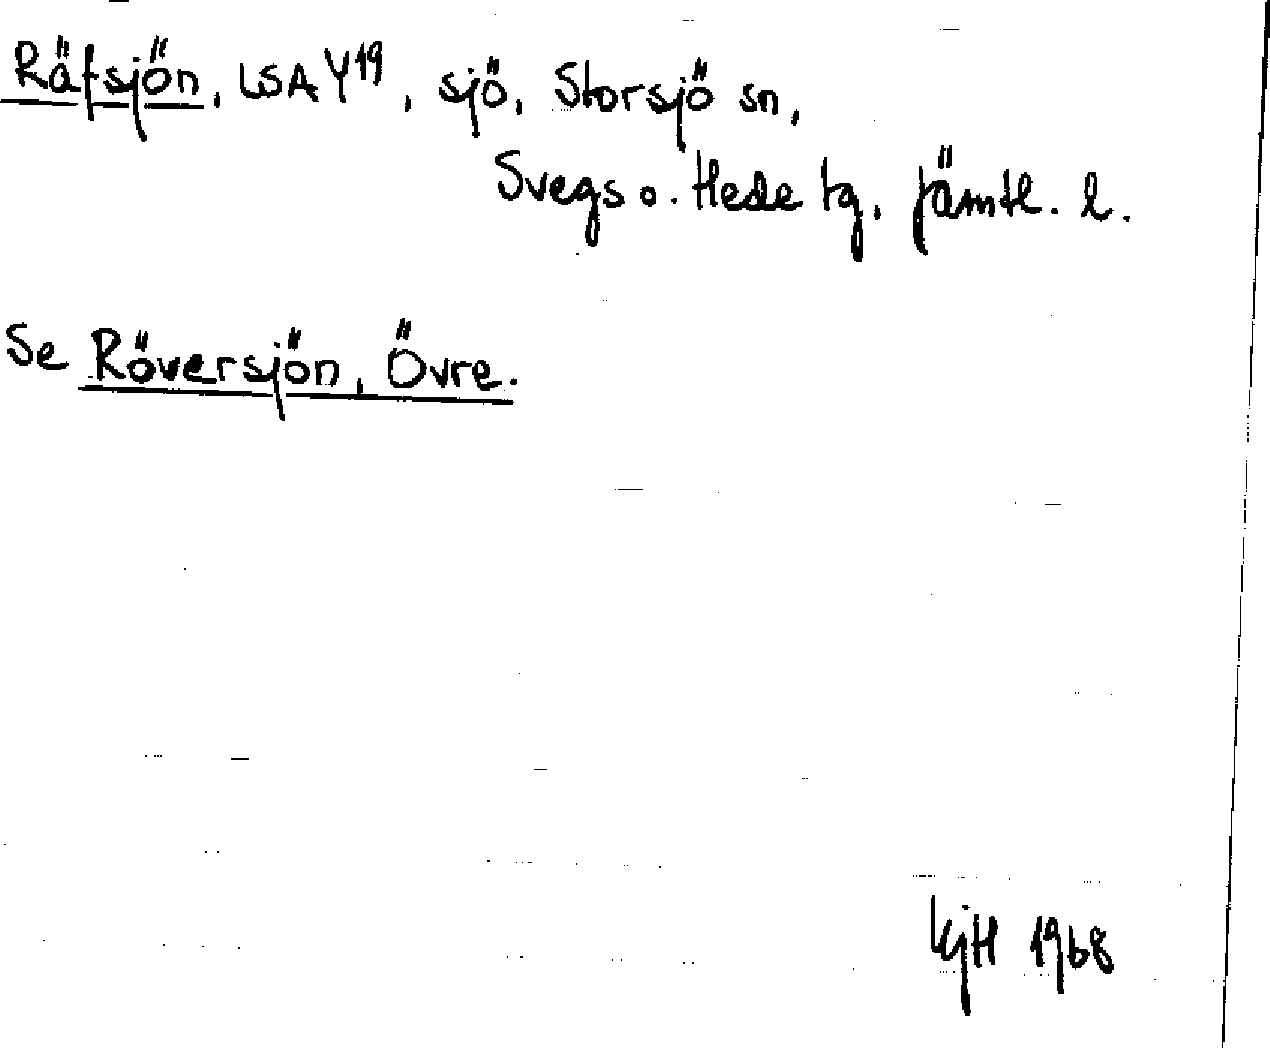 Räfsjön, LSA Y19, sjö, Storsjö sn,
Svegs o. Hede tg, Jämtl. l.
Se Röversjön, Övre.
KjH 1968